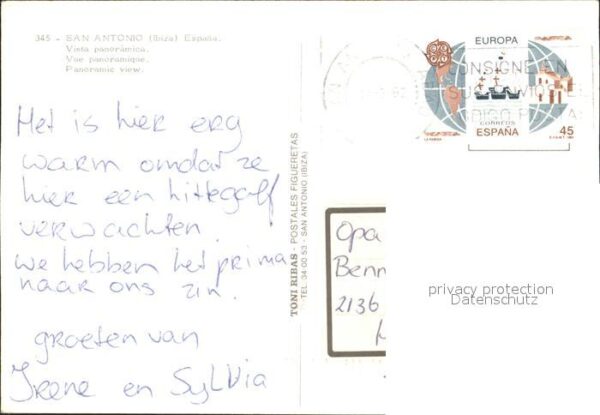 345 - SAN ANTONIO (Ibiza) España.
Vista panorámica.
Vue panoramique.
Panoramic view.
Het is hier erg
warm omdat ze
hier een hittegolf
verwachten.
we hebben het prima
naar ons zin.
groeten van
Irene en Sylvia
TONI RIBAS - POSTALES FIGUERETAS
TEL. 34 00 53 - SAN ANTONIO (IBIZA)
EUROPA
CONSIGNE EN
CORREOS
ESPAÑA
45
Opa
Benn
2136
privacy protection
Datenschutz